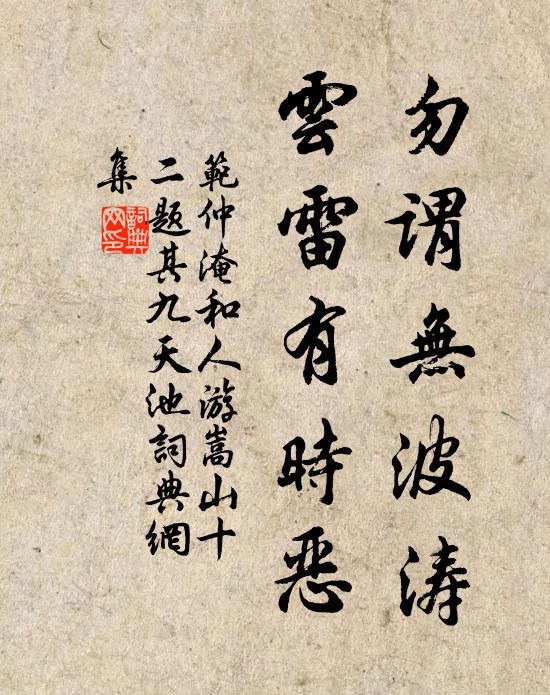 勿谓無波涛
雲雷有時恶
範仲淹和人游嵩山十
二题其九天池詞典網
集
詞典
网印